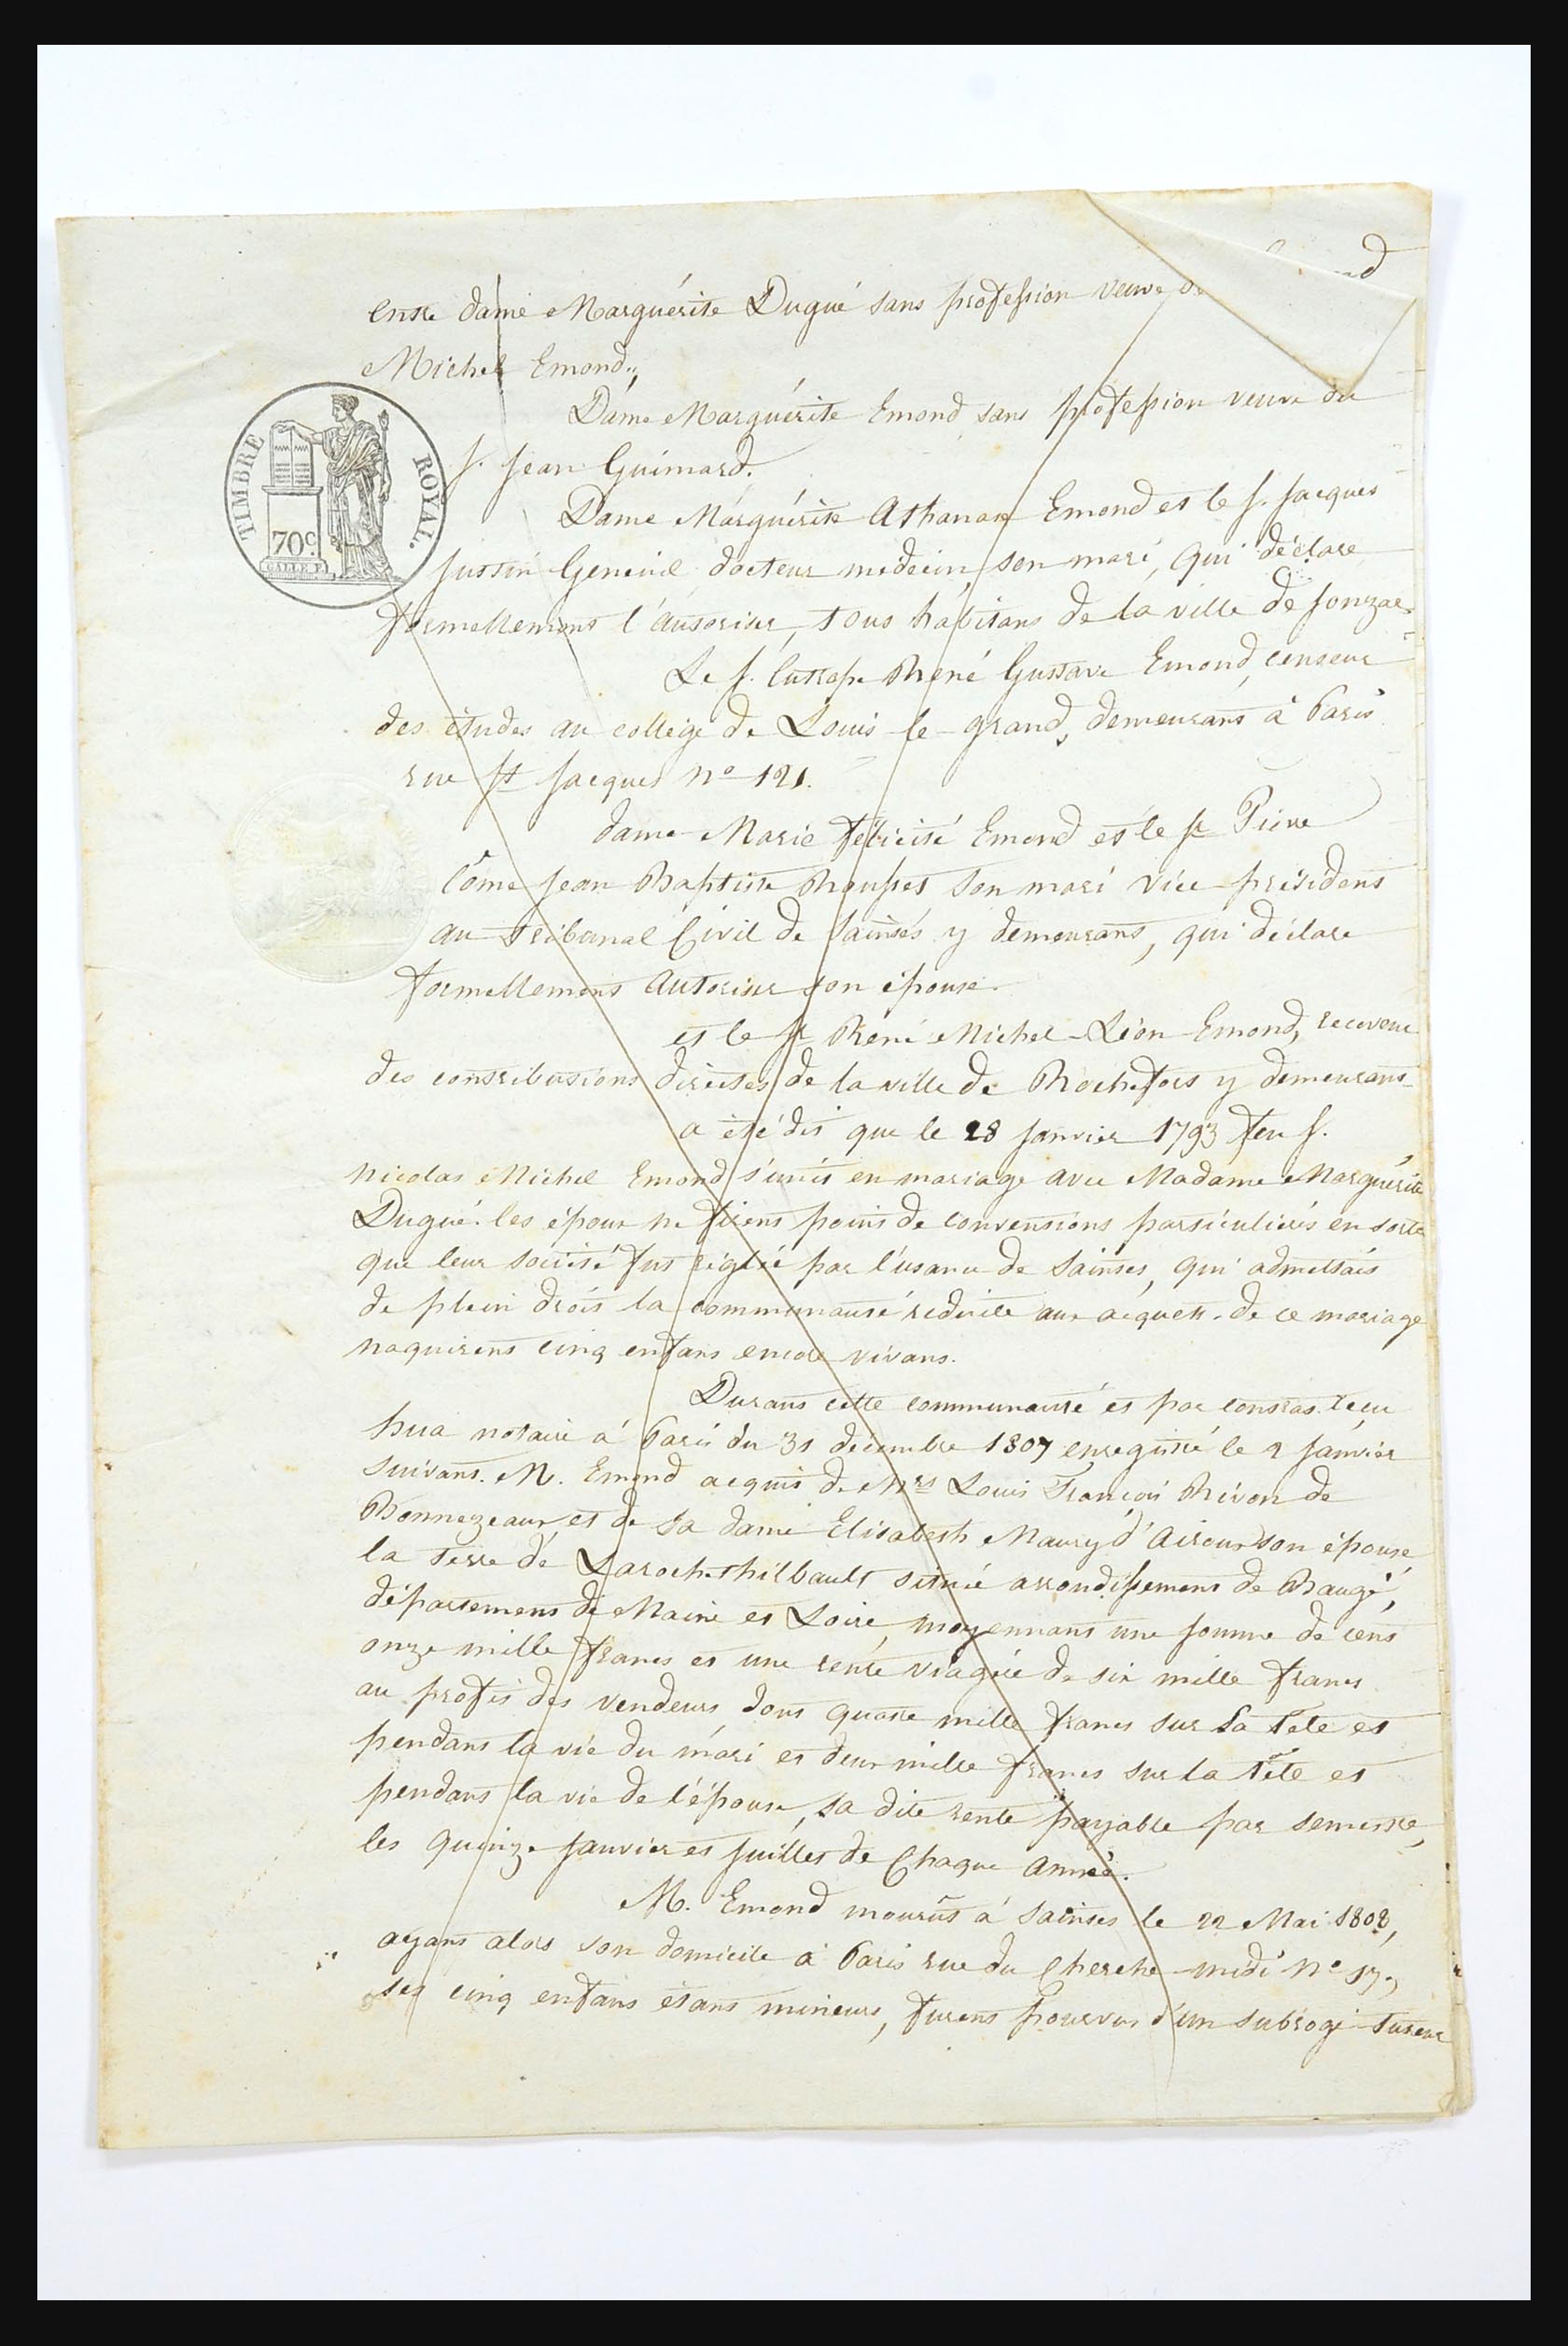 entre dame Marguérite Dugué sans profession veuve de
Michel Emond,
Dame Marguérite Emond sans profession veuve du
S. Jean Guimard.
TIMBRE ROYAL.
70c
Dame Marguérite Emond et le S. Jacques
Justin docteur médecin son mari, qui déclare
formellement l'autoriser, tous habitans de la ville de Jonzac.
Le S. Eutrope René Gustave Emond, censeur
des études au collége de Louis-le-grand, demeurant à Paris
rue St Jacques No 121.
dame Marie félicité Emond et le Sr Pierre
Côme Jean Baptiste son mari vice-président
au Tribunal Civil de Saintes y demeurant, qui déclare
formellement autoriser son épouse.
et le Sr René Michel-Léon-Emond, receveur
des contributions directes de la ville de Rochefort y demeurant
a été dit que le 28 Janvier 1793 feu S.
Nicolas Michel Emond s'unit en mariage avec Madame Marguérite
Dugué. les époux ne firent point de conventions particulières en sorte
que leur société fut réglée par l'usance de Saintes, qui admettait
de plein droit la communauté réduite aux acquets. de ce mariage
naquirent cinq enfans encore vivans.
Durant cette communauté et par contrat reçu
hua notaire à Paris du 31 décembre 1807 enregistré le 2 Janvier
suivant. M. Emond acquit de Mrs Louis François de
Bonnezeaux et de sa dame Elisabeth Maury son épouse
la terre de Larochethilbault située arrondissement de Baugé,
département de Maine et Loire, moyennant une somme de cent
onze mille francs et une rente viagère de six mille francs
au profit des vendeurs dont quatre mille francs sur la tête et
pendant la vie du mari et deux mille francs sur la tête et
pendant la vie de l'épouse, la dite rente payable par semestre,
les quinze Janvier et Juillet de Chaque année.
M. Emond mourût à Saintes le 22 Mai 1808,
ayant alors son domicile à Paris rue du Cherche-midi No 17,
ses cinq enfans étant mineurs, furent pourvus d'un subrogé-tuteur